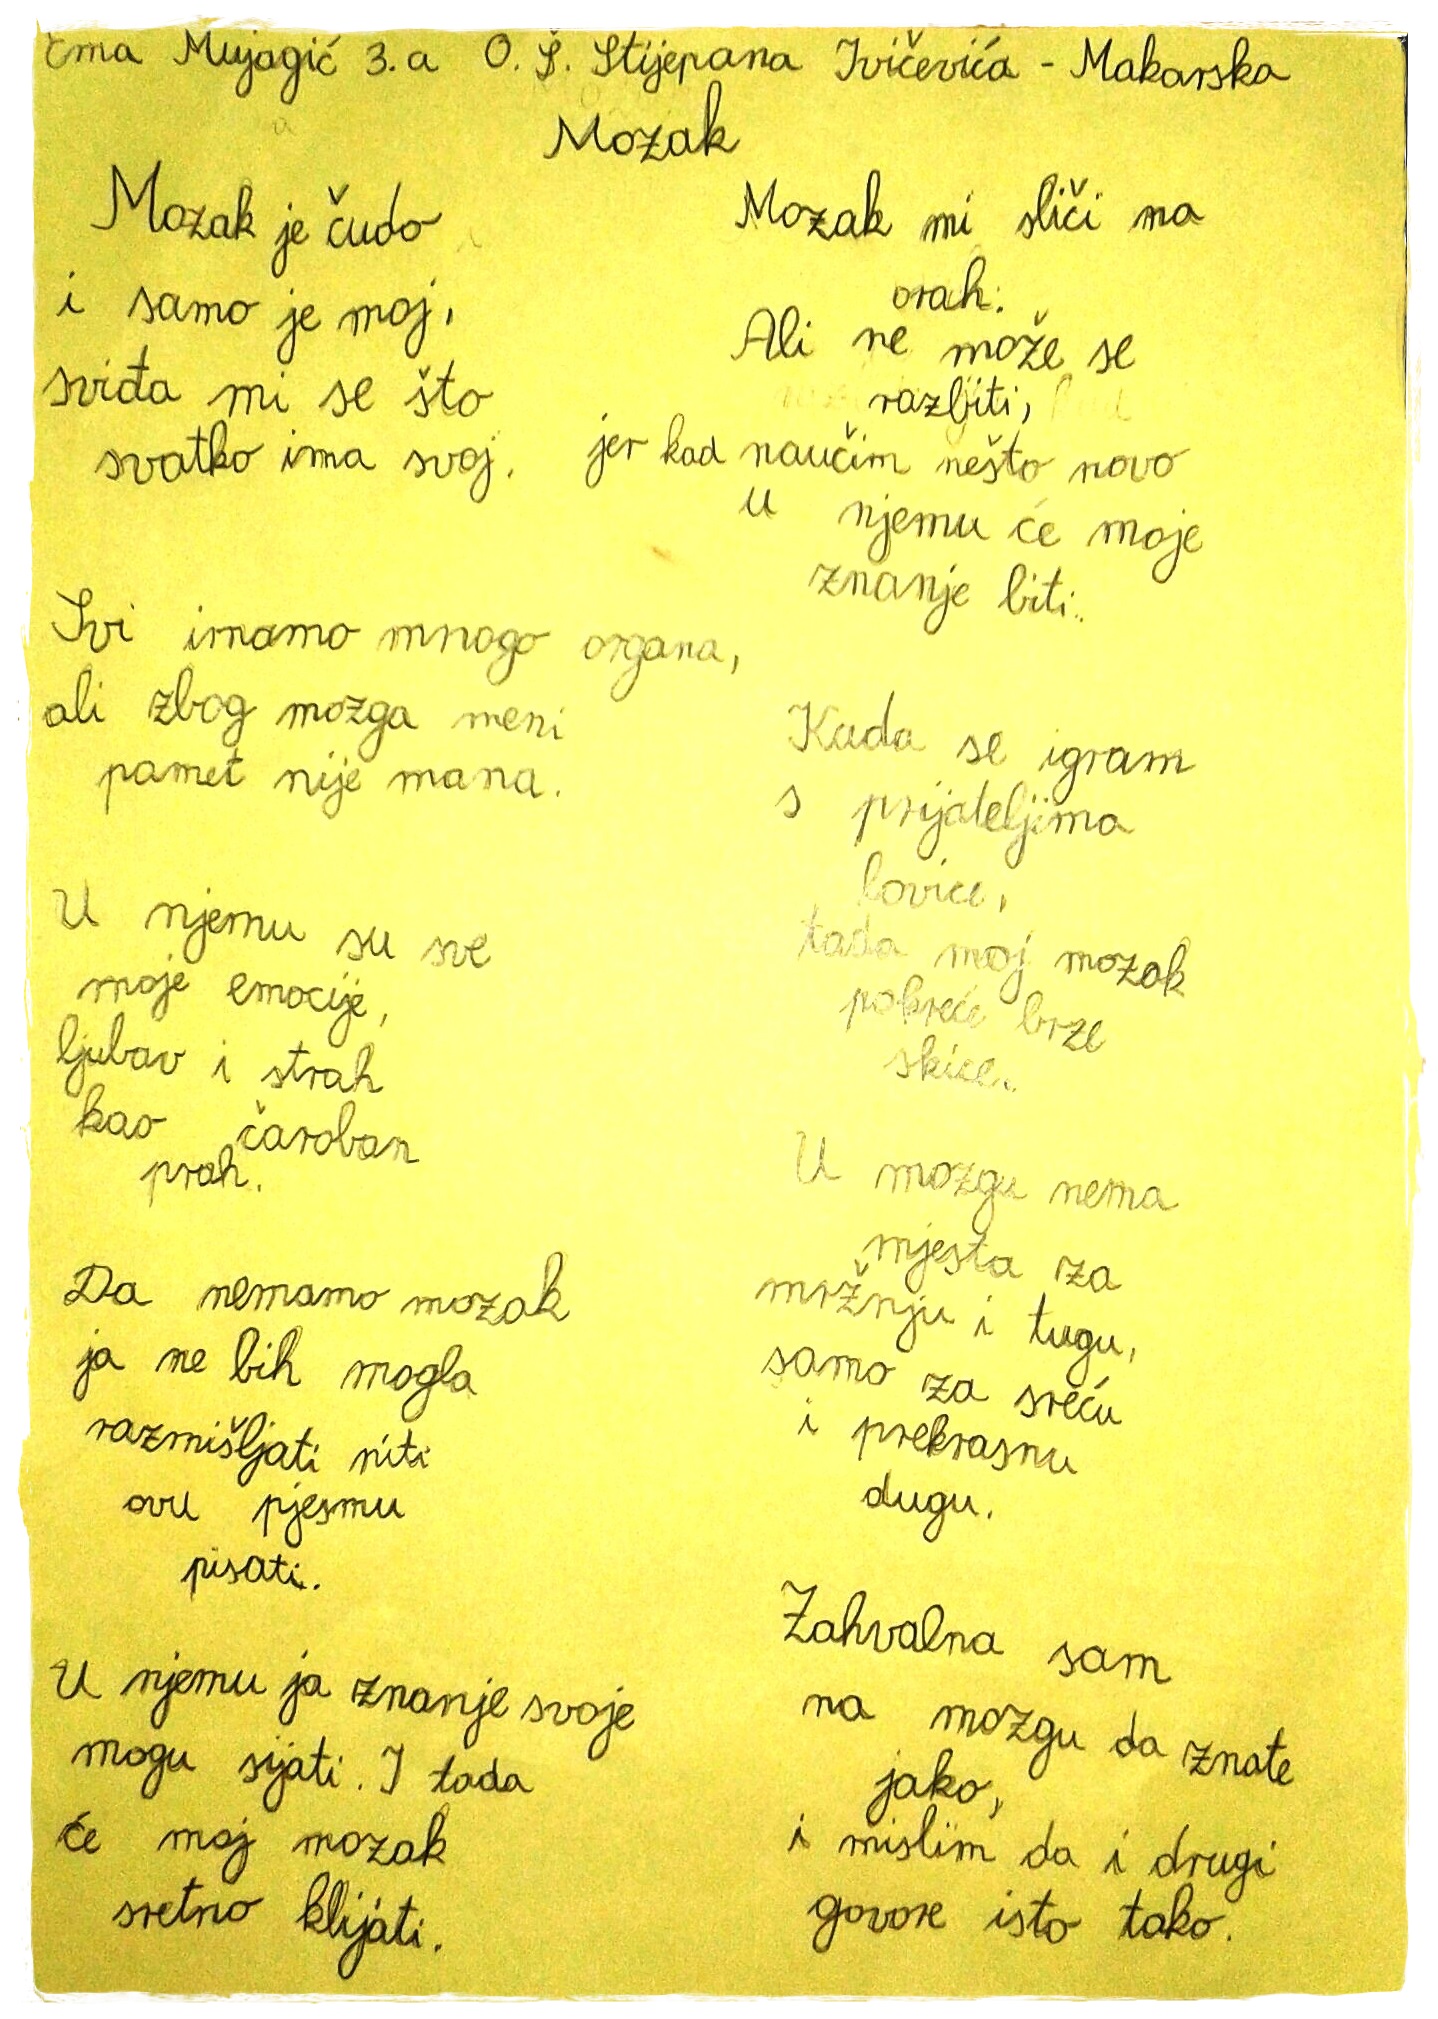 Ema Mujagić 3.a O.Š. Stijepana Ivičevića - Makarska
Mozak
Mozak je čudo
i samo je moj,
sviđa mi se što
svatko ima svoj.
Svi imamo mnogo organa,
ali zbog mozga meni
pamet nije mana.
U njemu su sve
moje emocije,
ljubav i strah
kao čaroban
prah.
Da nemamo mozak
ja ne bih mogla
razmišljati niti
ovu pjesmu
pisati.
U njemu ja znanje svoje
mogu sijati. I tada
će moj mozak
sretno klijati.
Mozak mi sliči na
orah.
Ali ne može se
razbiti,
jer kad naučim nešto novo
u njemu će moje
znanje biti.
Kada se igram
s prijateljima
lovice,
tada moj mozak
pokreće brze
skice.
U mozgu nema
mjesta za
mržnju i tugu,
samo za sreću
i prekrasnu
dugu.
Zahvalna sam
na mozgu da znate
jako,
i mislim da i drugi
govore isto tako.